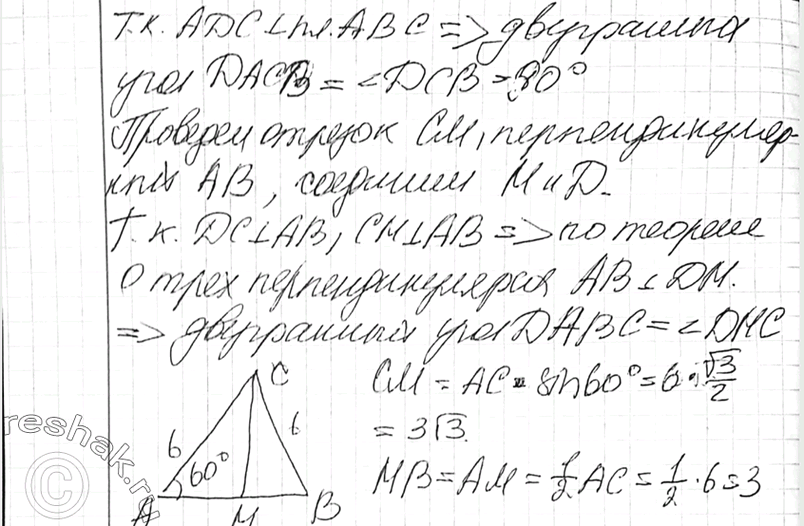 Т.к. ADC⊥пл.ABC => двугранный
угол DACB = ∠DCB = 90°
Проведем отрезок CM, перпендикуляр-
ный AB, соединим M и D.
Т.к. DC⊥AB, CM⊥AB => по теореме
о трех перпендикулярах AB⊥DM.
=> двугранный угол DABC = ∠DMC
C
CM = AC · sin60° = 6 · √3/2
= 3√3.
6
6
60°
MB = AM = 1/2 AC = 1/2 · 6 = 3
A
M
B
reshak.ru
©